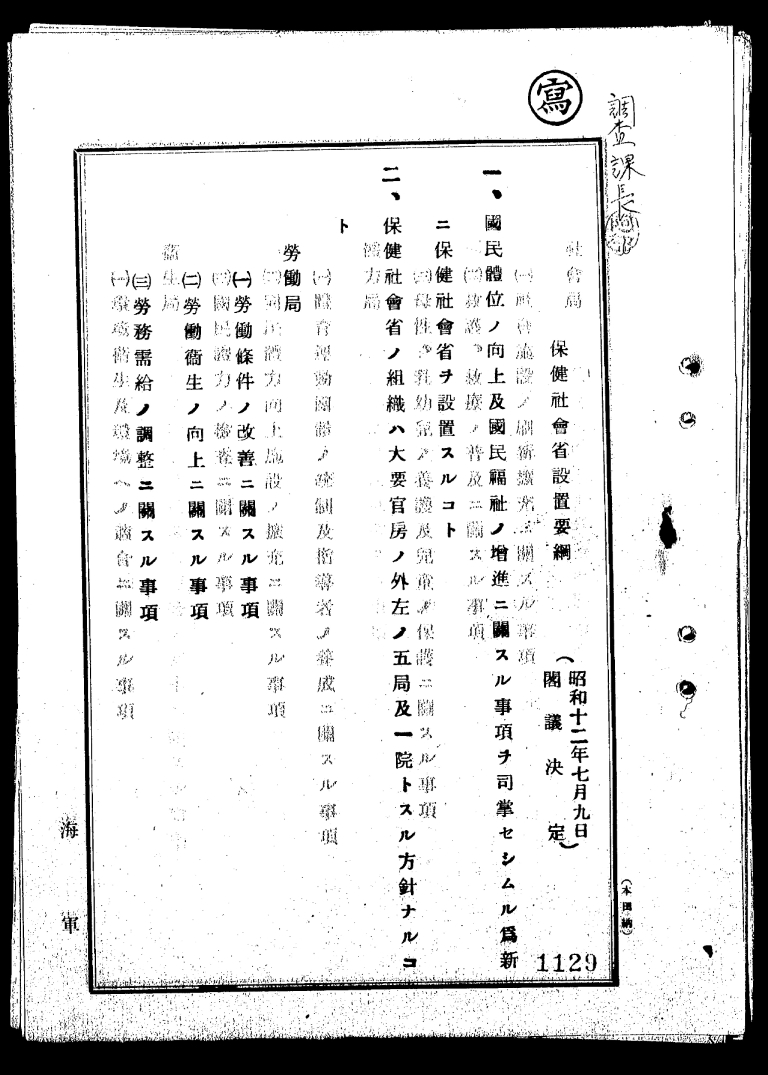 寫
調査課長
保健社會省設置要綱
（昭和十二年七月九日
閣議決定）
一、國民體位ノ向上及國民福祉ノ增進ニ關スル事項ヲ司掌セシムル爲新
ニ保健社會省ヲ設置スルコト
二、保健社會省ノ組織ハ大要官房ノ外左ノ五局及一院トスル方針ナルコ
ト
勞働局
㈠勞働條件ノ改善ニ關スル事項
㈡勞働衞生ノ向上ニ關スル事項
㈢勞務需給ノ調整ニ關スル事項
社會局
㈠社會施設ノ刷新擴充ニ關スル事項
㈡救護、救療ノ普及ニ關スル事項
㈢母性及乳幼兒ノ養護及兒童ノ保護ニ關スル事項
體力局
㈠體育運動團體ノ統制及指導者ノ養成ニ關スル事項
㈡國民體力向上施設ノ擴充ニ關スル事項
㈢國民體力ノ檢査ニ關スル事項
衞生局
㈠環境衞生及環境ヘノ適合ニ關スル事項
海軍
（本田納）
1129